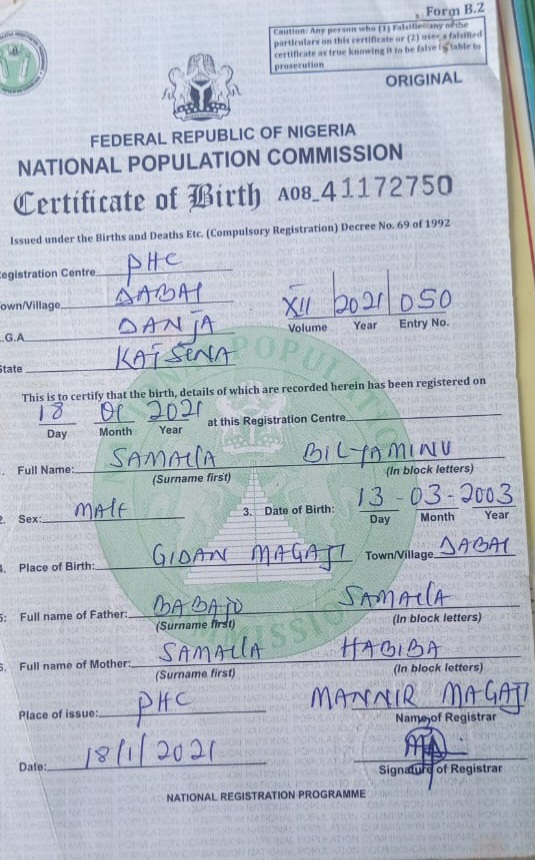 Form B.2
Caution: Any person who (1) Falsifies any of the
particulars on this certificate or (2) uses a falsified
certificate as true knowing it to be false is liable to
prosecution
ORIGINAL
FEDERAL REPUBLIC OF NIGERIA
NATIONAL POPULATION COMMISSION
Certificate of Birth A08_41172750
Issued under the Births and Deaths Etc. (Compulsory Registration) Decree No. 69 of 1992
egistration Centre PHC
own/Village DABAI
XII 2021 050
Volume Year Entry No.
.G.A DANJA
State KATSENA
This is to certify that the birth, details of which are recorded herein has been registered on
18 01 2021 at this Registration Centre
Day Month Year
. Full Name: SAMAILA BILYAMINU
(Surname first) (In block letters)
2. Sex: MALE 3. Date of Birth: 13-03-2003
Day Month Year
4. Place of Birth: GIDAN MAGAJI Town/Village DABAI
5: Full name of Father: BABAJO SAMAILA
(Surname first) (In block letters)
6. Full name of Mother: SAMAILA HABIBA
(Surname first) (In block letters)
Place of issue: PHC MANNIR MAGAJI
Name of Registrar
Date: 18/1/2021
Signature of Registrar
NATIONAL REGISTRATION PROGRAMME